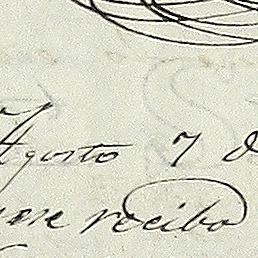 Agosto 7 d
recibo